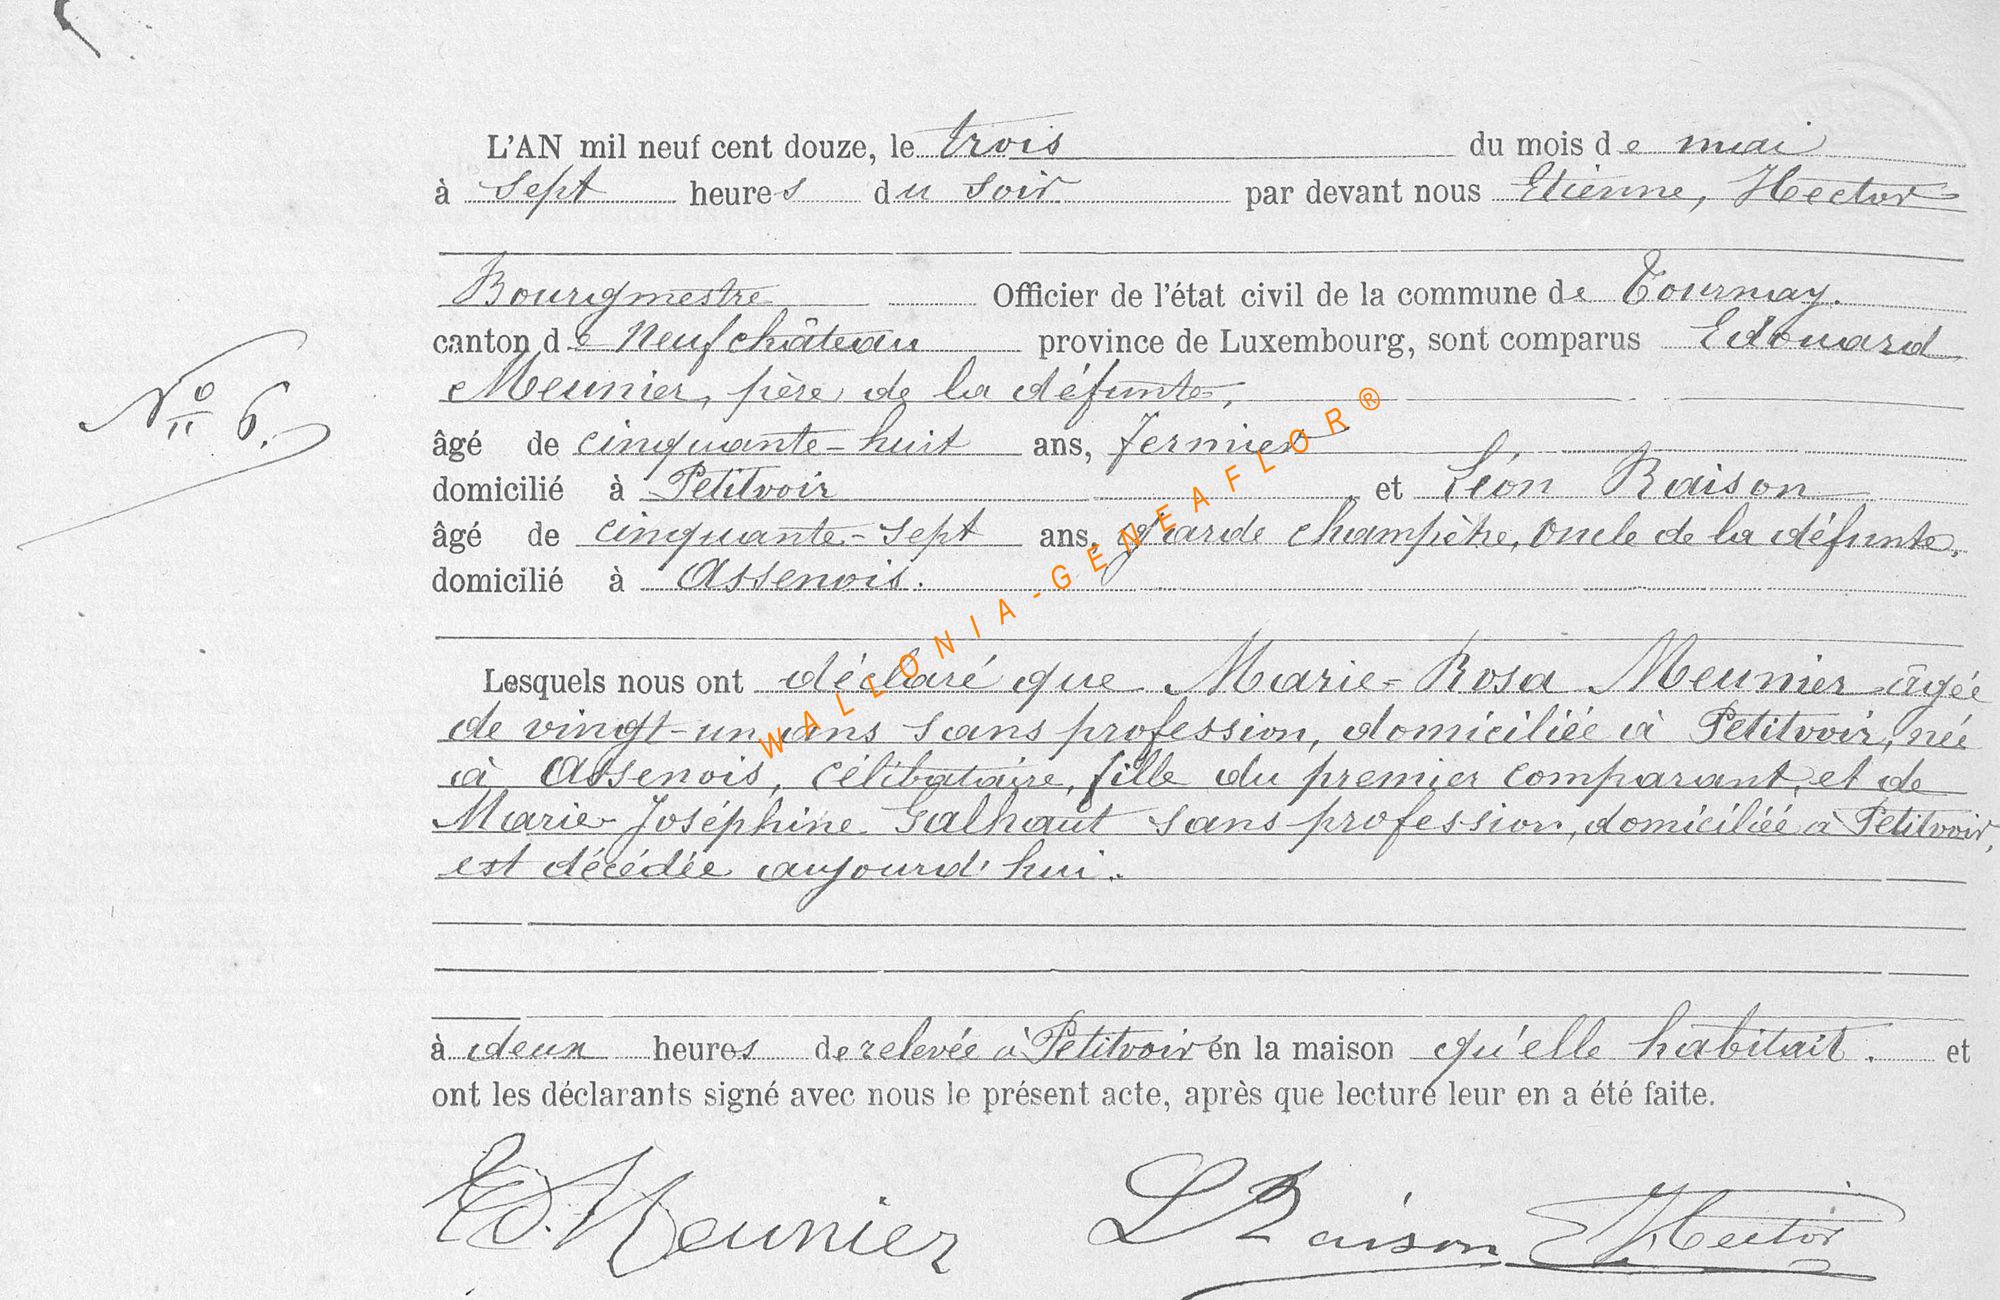 L'AN mil neuf cent douze, le trois du mois de mai
à sept heures du soir par devant nous Etienne, Hector
Bourgmestre Officier de l'état civil de la commune de Tournay.
canton de Neufchâteau province de Luxembourg, sont comparus Edouard
Meunier, père de la défunte,
N° 6.
âgé de cinquante-huit ans, fermier
domicilié à Petitvoir et Léon Raison
âgé de cinquante-sept ans, garde champêtre, oncle de la défunte,
domicilié à Assenois.
WALLONIA-GENEAFLOR®
Lesquels nous ont déclaré que Marie-Rosa Meunier âgée
de vingt-un ans sans profession, domiciliée à Petitvoir, née
à Assenois, célibataire, fille du premier comparant, et de
Marie-Joséphine Galhaut sans profession, domiciliée à Petitvoir,
est décédée aujourd'hui.
à deux heures de relevée à Petitvoir en la maison qu'elle habitait. et
ont les déclarants signé avec nous le présent acte, après que lecture leur en a été faite.
Ed. Meunier L Raison E Hector